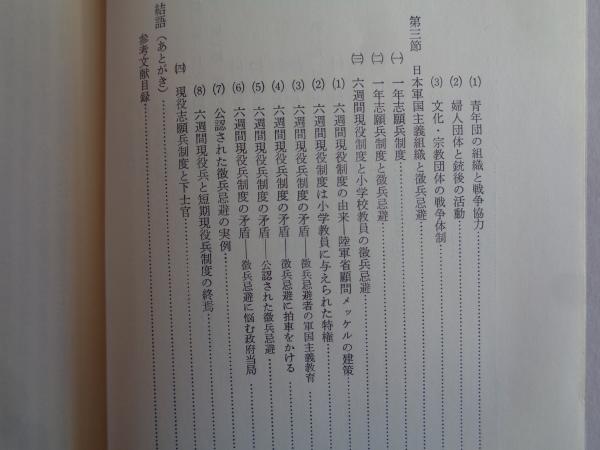 (1) 青年団の組織と戦争協力
(2) 婦人団体と銃後の活動
(3) 文化・宗教団体の戦争体制
第三節 日本軍国主義組織と徴兵忌避
㈠ 一年志願兵制度
㈡ 一年志願兵制度と徴兵忌避
㈢ 六週間現役制度と小学校教員の徴兵忌避
(1) 六週間現役制度の由来―陸軍省顧問メッケルの建策
(2) 六週間現役制度は小学教員に与えられた特権
(3) 六週間現役兵制度の矛盾――徴兵忌避者の軍国主義教育
(4) 六週間現役兵制度の矛盾――徴兵忌避に拍車をかける
(5) 六週間現役兵制度の矛盾――公認された徴兵忌避
(6) 六週間現役兵制度の矛盾――徴兵忌避に悩む政府当局
(7) 公認された徴兵忌避の実例
(8) 六週間現役兵と短期現役兵制度の終焉
㈣ 現役志願兵制度と下士官
結語(あとがき)
参考文献目録